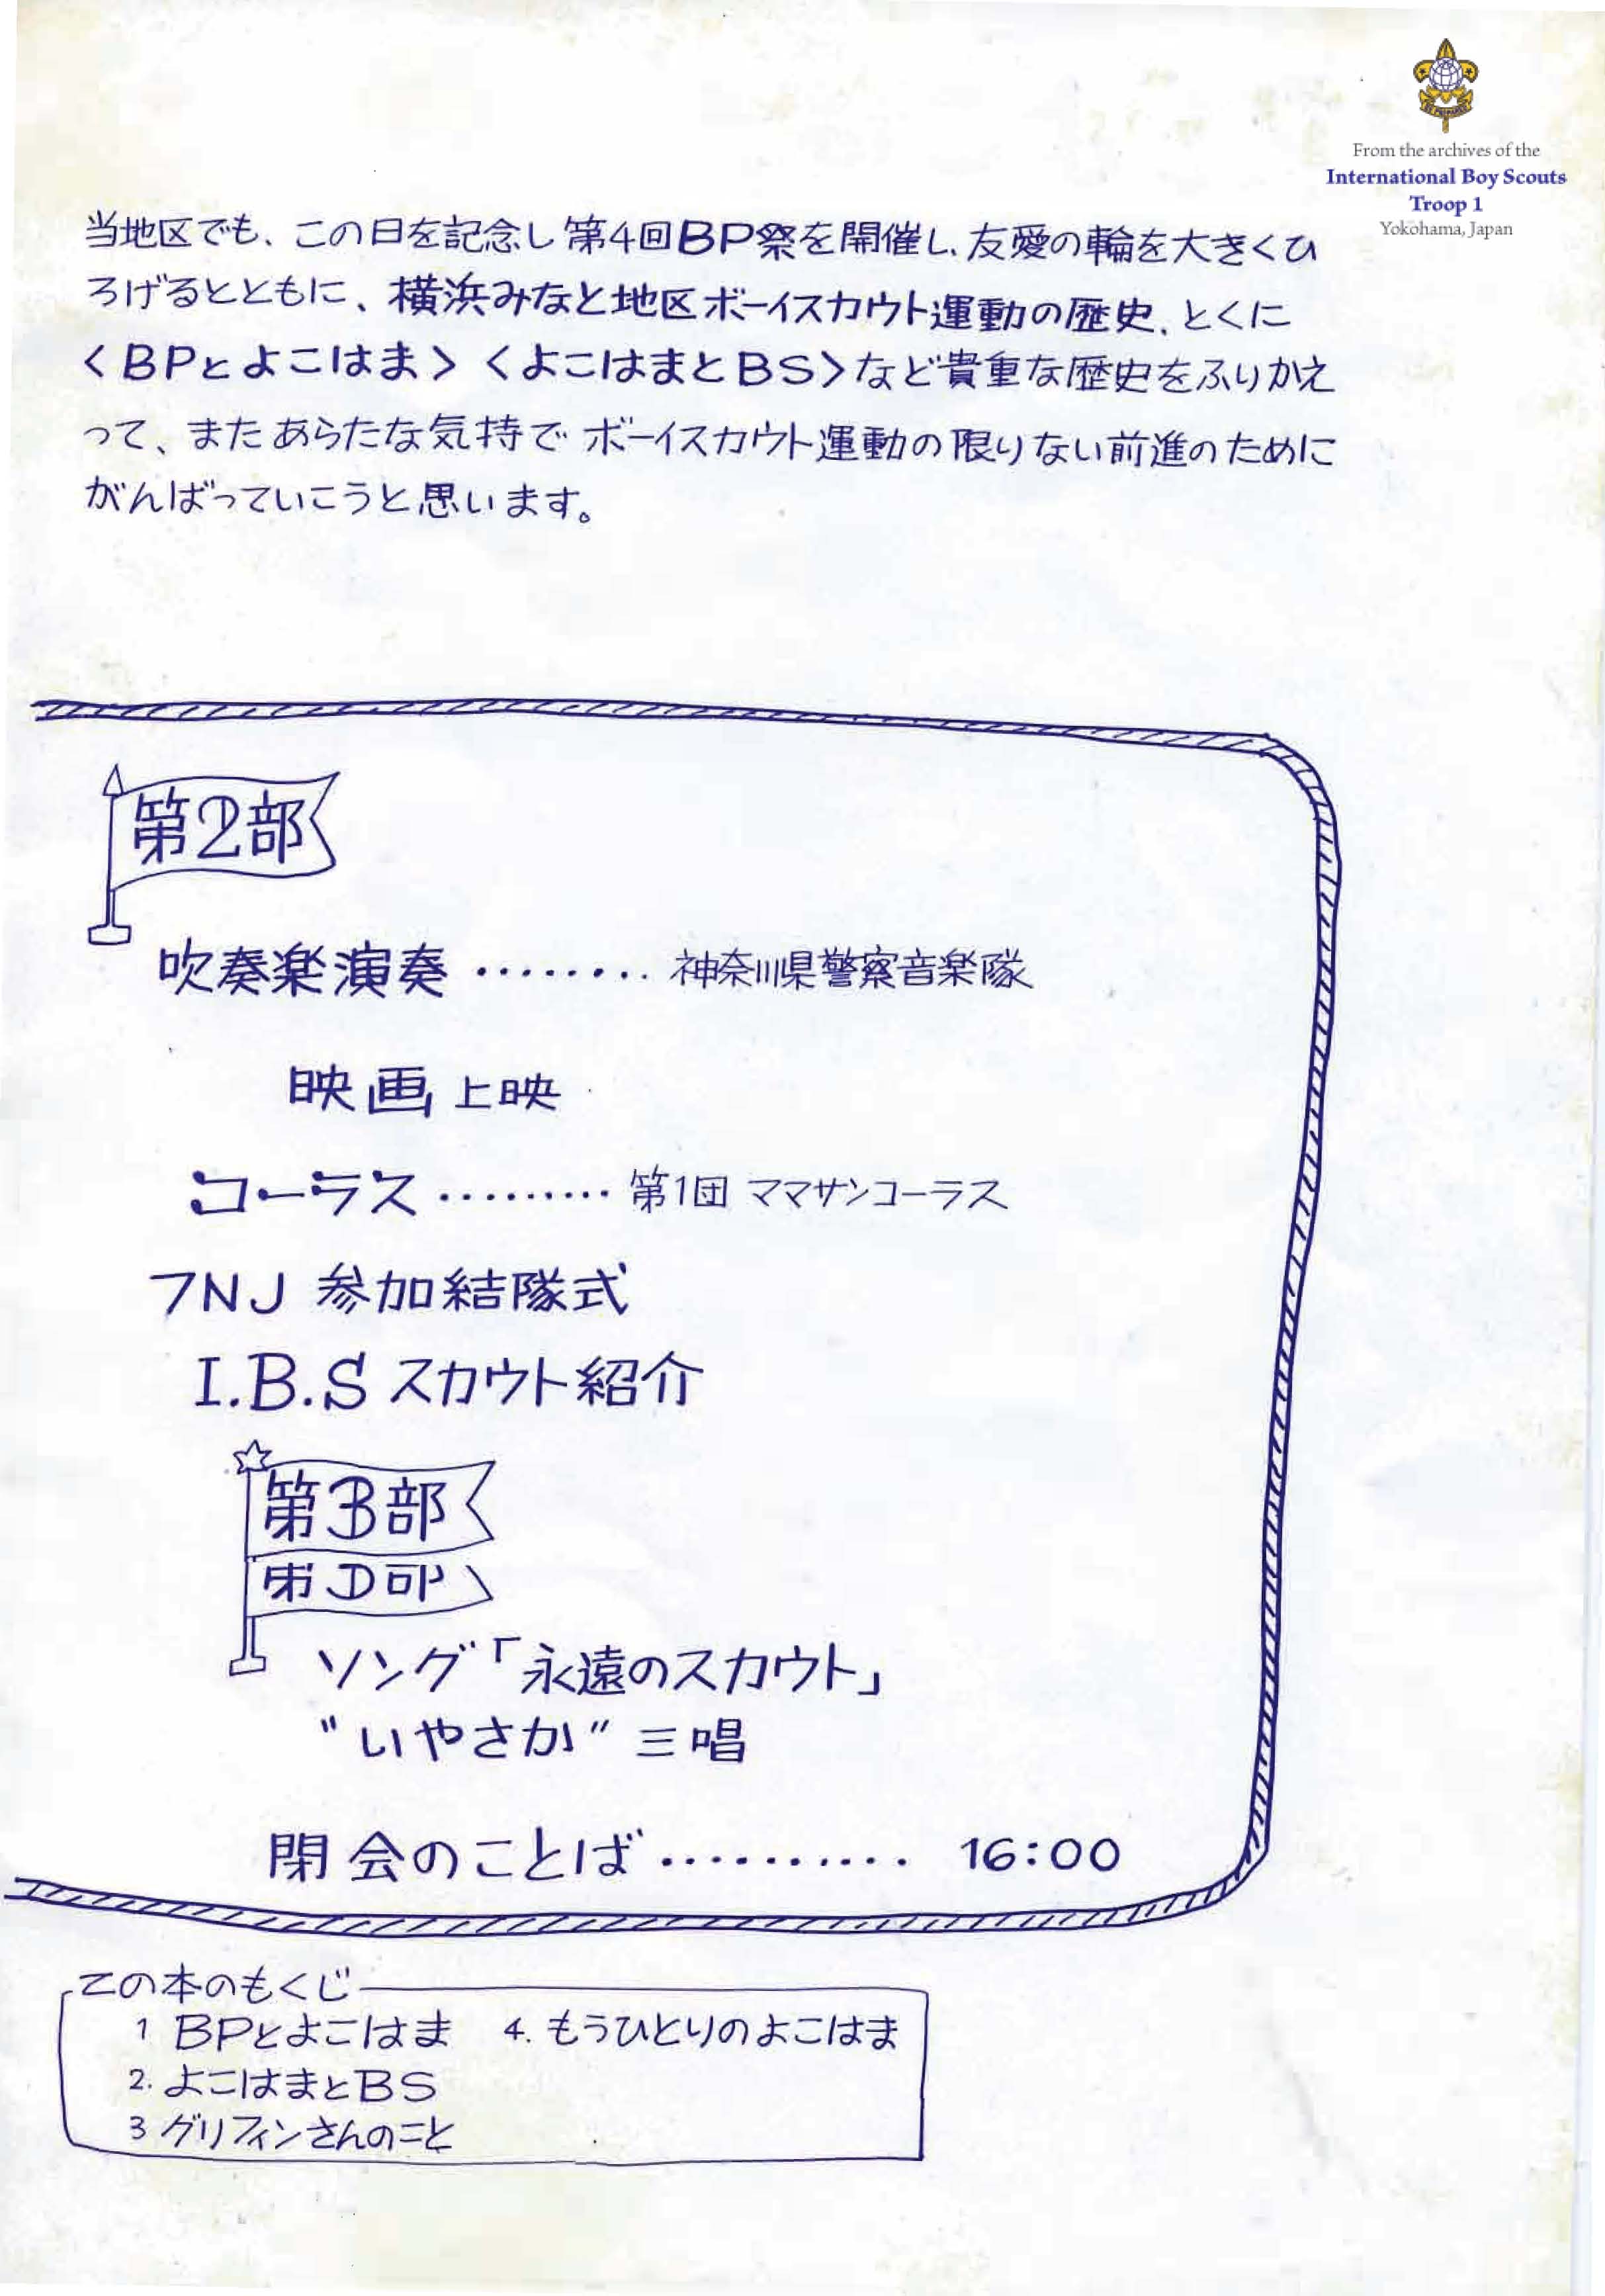 From the archives of the
International Boy Scouts
Troop 1
Yokohama, Japan
当地区でも、この日を記念し第4回BP祭を開催し、友愛の輪を大きくひ
ろげるとともに、横浜みなと地区ボーイスカウト運動の歴史、とくに
〈BPとよこはま〉〈よこはまとBS〉など貴重な歴史をふりかえ
って、またあらたな気持でボーイスカウト運動の限りない前進のために
がんばっていこうと思います。
第2部
吹奏楽演奏 ········ 神奈川県警察音楽隊
映画上映
コーラス ········· 第1団 ママサンコーラス
7NJ 参加結隊式
I.B.S スカウト紹介
第3部
ソング「永遠のスカウト」
"いやさか" 三唱
閉会のことば ·········· 16:00
この本のもくじ
1 BPとよこはま 4. もうひとりのよこはま
2. よこはまとBS
3 グリフィンさんのこと